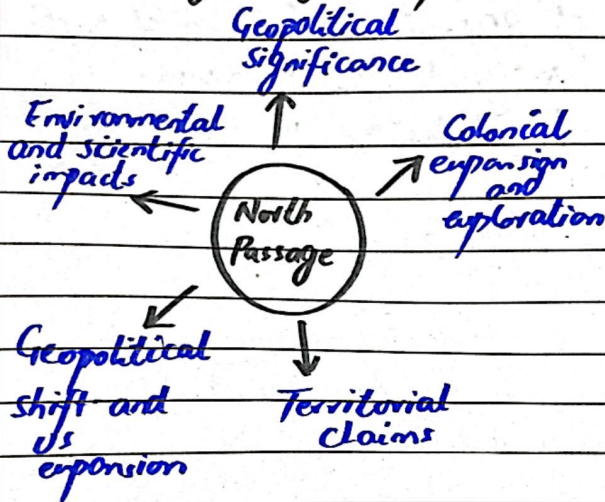 Geopolitical
significance
Environmental
and scientific
impacts
Colonial
expansion
and
exploration
North
Passage
Geopolitical
shift and
US
expansion
Territorial
claims